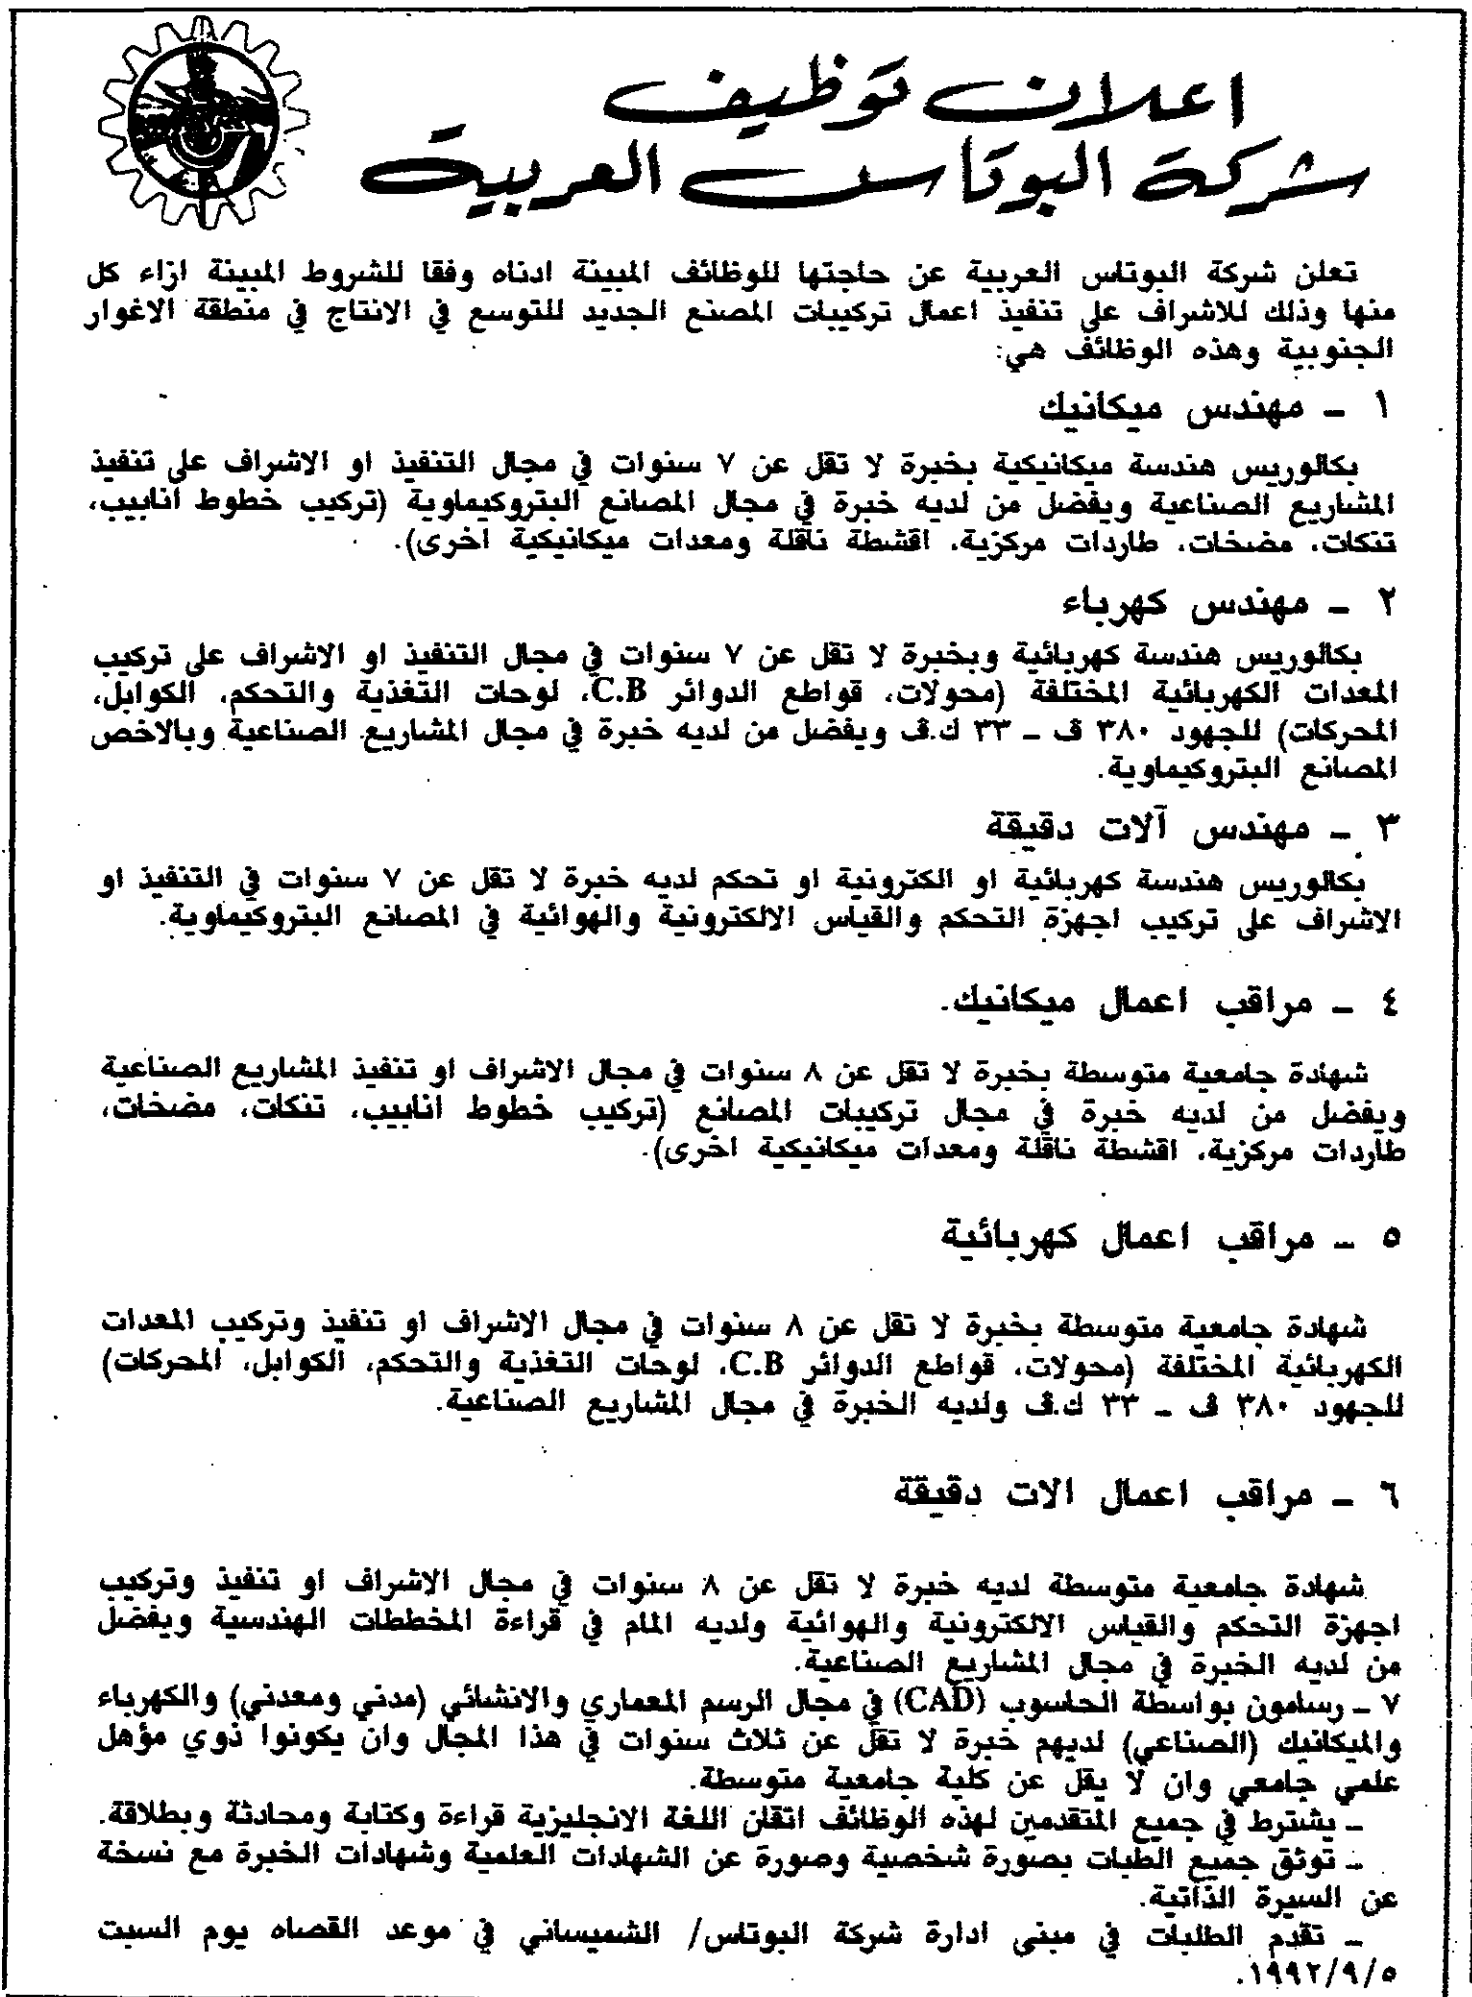 اعلان توظيف
شركة البوتاس العربية
تعلن شركة البوتاس العربية عن حاجتها للوظائف المبينة ادناه وفقا للشروط المبينة ازاء كل
منها وذلك للاشراف على تنفيذ اعمال تركيبات المصنع الجديد للتوسع في الانتاج في منطقة الاغوار
الجنوبية وهذه الوظائف هي:
١ ـ مهندس ميكانيك
بكالوريس هندسة ميكانيكية بخبرة لا تقل عن ٧ سنوات في مجال التنفيذ او الاشراف على تنفيذ
المشاريع الصناعية ويفضل من لديه خبرة في مجال المصانع البتروكيماوية (تركيب خطوط انابيب،
تنكات، مضخات، طاردات مركزية، اقشطة ناقلة ومعدات ميكانيكية اخرى).
٢ ـ مهندس كهرباء
بكالوريس هندسة كهربائية وبخبرة لا تقل عن ٧ سنوات في مجال التنفيذ او الاشراف على تركيب
المعدات الكهربائية المختلفة (محولات، قواطع الدوائر C.B، لوحات التغذية والتحكم، الكوابل،
المحركات) للجهود ٣٨٠ ف ـ ٣٣ ك.ف ويفضل من لديه خبرة في مجال المشاريع الصناعية وبالاخص
المصانع البتروكيماوية.
٣ ـ مهندس آلات دقيقة
بكالوريس هندسة كهربائية او الكترونية او تحكم لديه خبرة لا تقل عن ٧ سنوات في التنفيذ او
الاشراف على تركيب اجهزة التحكم والقياس الالكترونية والهوائية في المصانع البتروكيماوية.
٤ ـ مراقب اعمال ميكانيك.
شهادة جامعية متوسطة بخبرة لا تقل عن ٨ سنوات في مجال الاشراف او تنفيذ المشاريع الصناعية
ويفضل من لديه خبرة في مجال تركيبات المصانع (تركيب خطوط انابيب، تنكات، مضخات،
طاردات مركزية، اقشطة ناقلة ومعدات ميكانيكية اخرى).
٥ ـ مراقب اعمال كهربائية
شهادة جامعية متوسطة بخبرة لا تقل عن ٨ سنوات في مجال الاشراف او تنفيذ وتركيب المعدات
الكهربائية المختلفة (محولات، قواطع الدوائر C.B، لوحات التغذية والتحكم، الكوابل، المحركات)
للجهود ٣٨٠ ف ـ ٣٣ ك.ف ولديه الخبرة في مجال المشاريع الصناعية.
٦ ـ مراقب اعمال الات دقيقة
شهادة جامعية متوسطة لديه خبرة لا تقل عن ٨ سنوات في مجال الاشراف او تنفيذ وتركيب
اجهزة التحكم والقياس الالكترونية والهوائية ولديه المام في قراءة المخططات الهندسية ويفضل
من لديه الخبرة في مجال المشاريع الصناعية.
٧ ـ رسامون بواسطة الحاسوب (CAD) في مجال الرسم المعماري والانشائي (مدني ومعدني) والكهرباء
والميكانيك (الصناعي) لديهم خبرة لا تقل عن ثلاث سنوات في هذا المجال وان يكونوا ذوي مؤهل
علمي جامعي وان لا يقل عن كلية جامعية متوسطة.
ـ يشترط في جميع المتقدمين لهذه الوظائف اتقان اللغة الانجليزية قراءة وكتابة ومحادثة وبطلاقة.
ـ توثق جميع الطبات بصورة شخصية وصورة عن الشهادات العلمية وشهادات الخبرة مع نسخة
عن السيرة الذاتية.
ـ تقدم الطلبات في مبنى ادارة شركة البوتاس/ الشميساني في موعد القصاه يوم السبت
١٩٩٢/٩/٥.